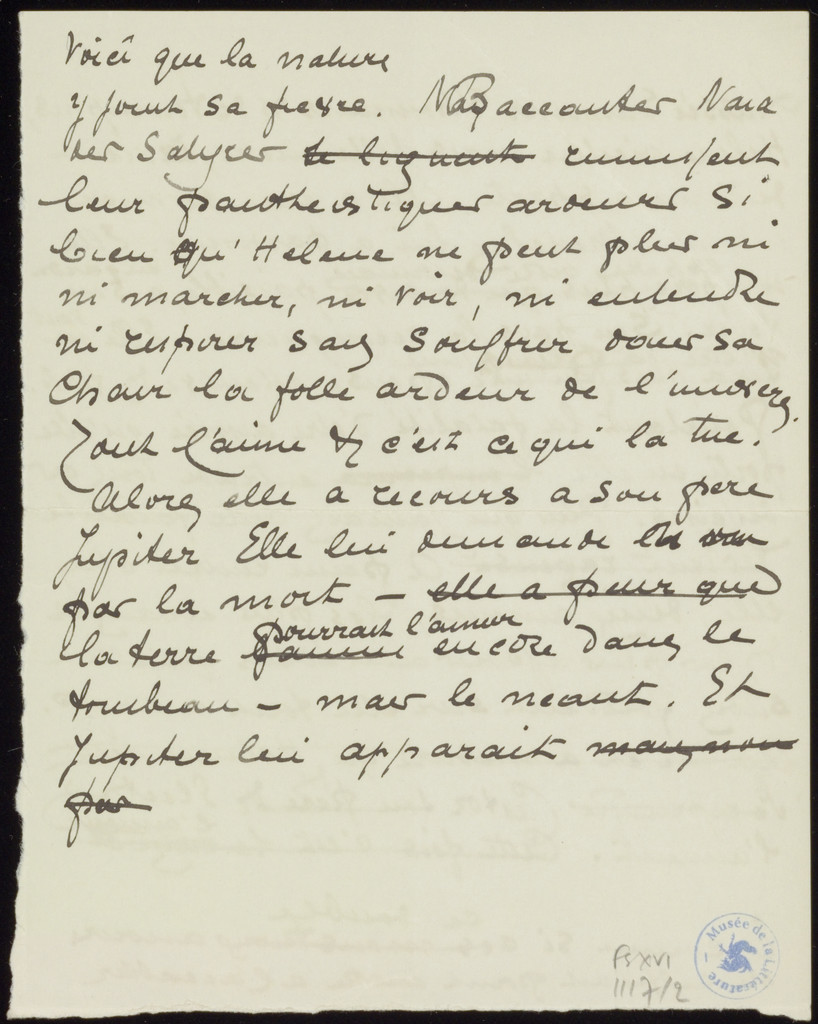 Voici que la nature
y joint sa fievre. Baccantes Naia
des Satyres le liguent reunissent
leur pantheistiques ardeurs si
bien qu'Helene ne peut plus ni
ni marcher, ni voir, ni entendre
ni respirer sans souffrir dans sa
chair la folle ardeur de l'univers.
Tout l'aime & c'est ce qui la tue.
Alors elle a recours a son pere
Jupiter Elle lui demande non
pas la mort – elle a peur que
pourrait l'aimer
la terre encore dans le
tombeau – mais le neant. Et
Jupiter lui apparait mais non
pas
Musée de la Littérature
FS XVI
1117/2